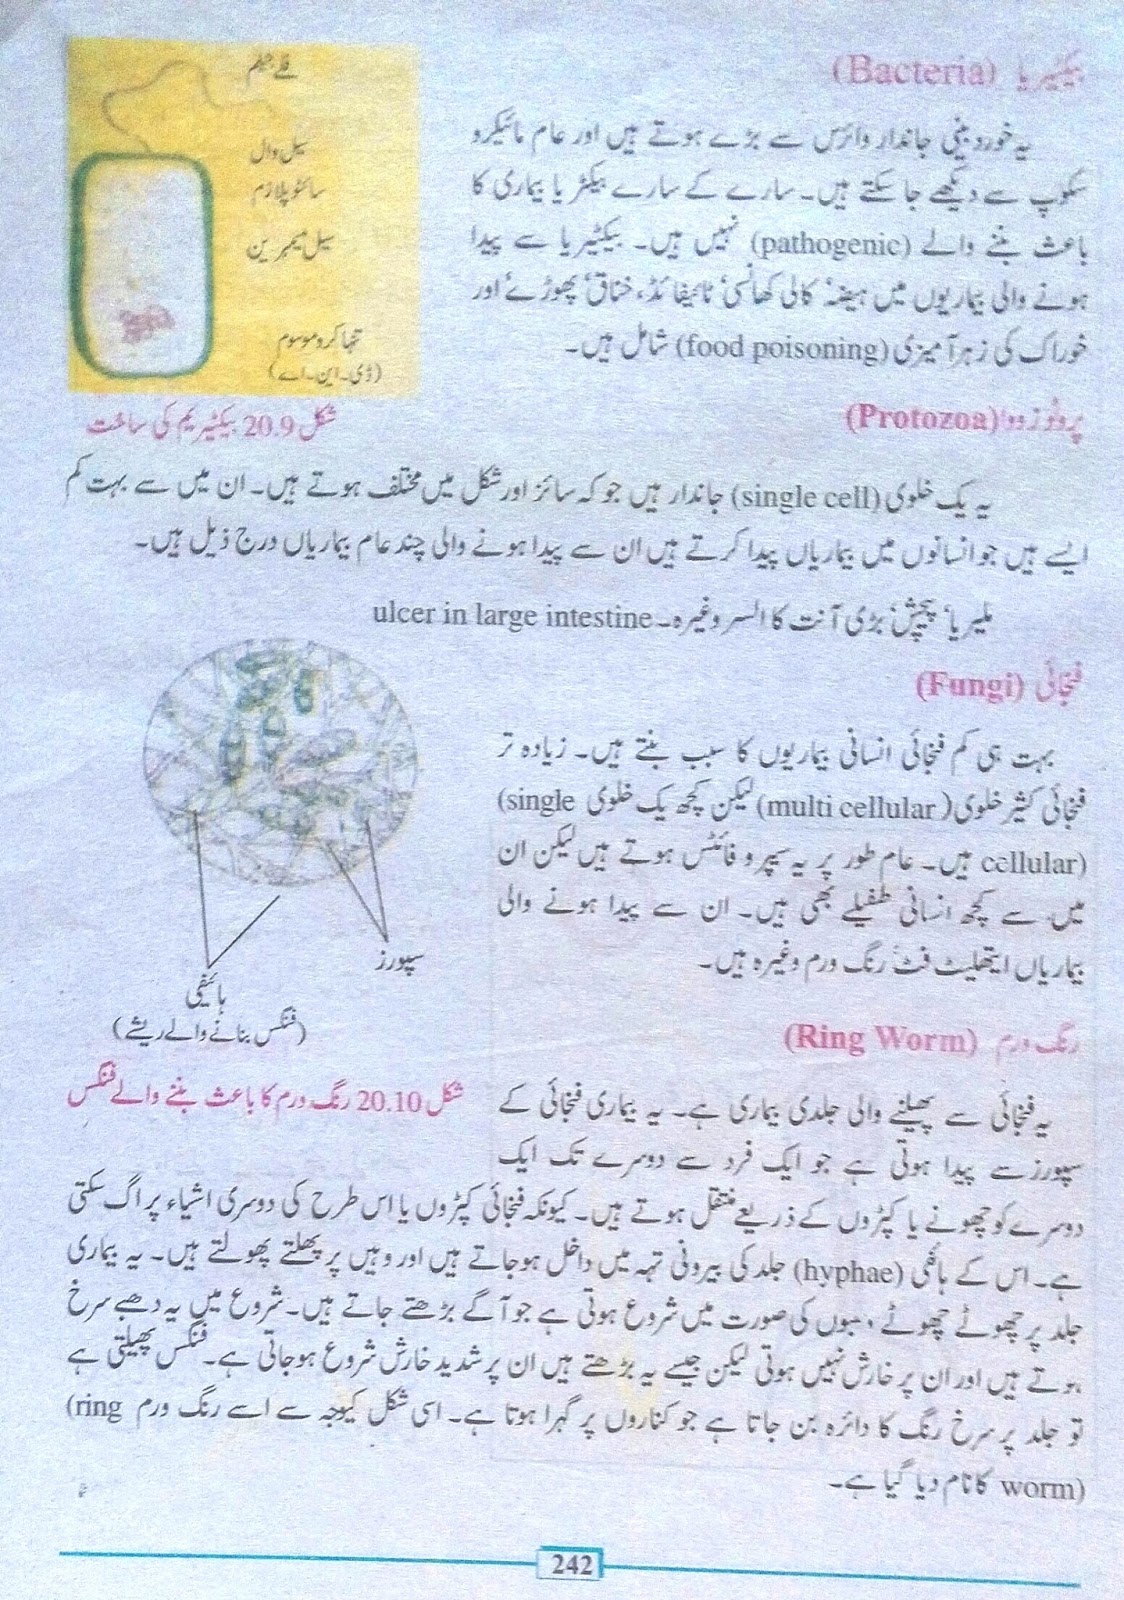 بیکٹیریا (Bacteria)
یہ خوردبینی جاندار وائرس سے بڑے ہوتے ہیں اور عام مائیکرو
سکوپ سے دیکھے جا سکتے ہیں۔ سارے کے سارے بیکٹریا بیماری کا
باعث بننے والے (pathogenic) نہیں ہیں۔ بیکٹیریا سے پیدا
ہونے والی بیماریوں میں ہیضہ، کالی کھانسی، ٹائیفائڈ، خناق، پھوڑے اور
خوراک کی زہرآمیزی (food poisoning) شامل ہیں۔
فلے جیلم
سیل وال
سائٹوپلازم
سیل میمبرین
تنہا کروموسوم
(ڈی۔این۔اے)
شکل 20.9 بیکٹیریم کی ساخت
پروٹوزووا (Protozoa)
یہ یک خلوی (single cell) جاندار ہیں جو کہ سائز اور شکل میں مختلف ہوتے ہیں۔ ان میں سے بہت کم
ایسے ہیں جو انسانوں میں بیماریاں پیدا کرتے ہیں ان سے پیدا ہونے والی چند عام بیماریاں درج ذیل ہیں۔
ملیریا، پیچش، بڑی آنت کا السر وغیرہ۔ ulcer in large intestine
فنجائی (Fungi)
بہت ہی کم فنجائی انسانی بیماریوں کا سبب بنتے ہیں۔ زیادہ تر
فنجائی کثیر خلوی (multi cellular) لیکن کچھ یک خلوی (single
cellular) ہیں۔ عام طور پر یہ سیپروفائٹس ہوتے ہیں لیکن ان
میں سے کچھ انسانی طفیلے بھی ہیں۔ ان سے پیدا ہونے والی
بیماریاں ایتھلیٹ فٹ، رنگ ورم وغیرہ ہیں۔
سپورز
ہائیفی
(فنگس بنانے والے ریشے)
شکل 20.10 رنگ ورم کا باعث بننے والے فنگس
رنگ ورم (Ring Worm)
یہ فنجائی سے پھیلنے والی جلدی بیماری ہے۔ یہ بیماری فنجائی کے
سپورز سے پیدا ہوتی ہے جو ایک فرد سے دوسرے تک ایک
دوسرے کو چھونے یا کپڑوں کے ذریعے منتقل ہوتے ہیں۔ کیونکہ فنجائی کپڑوں یا اس طرح کی دوسری اشیاء پر اگ سکتی
ہے۔ اس کے ہائفی (hyphae) جلد کی بیرونی تہہ میں داخل ہو جاتے ہیں اور وہیں پر پھلتے پھولتے ہیں۔ یہ بیماری
جلد پر چھوٹے چھوٹے دھبوں کی صورت میں شروع ہوتی ہے جو آگے بڑھتے جاتے ہیں۔ شروع میں یہ دھبے سرخ
ہوتے ہیں اور ان پر خارش نہیں ہوتی لیکن جیسے یہ بڑھتے ہیں ان پر شدید خارش شروع ہو جاتی ہے۔ فنگس پھیلتی ہے
تو جلد پر سرخ رنگ کا دائرہ بن جاتا ہے جو کناروں پر گہرا ہوتا ہے۔ اسی شکل کیوجہ سے اسے رنگ ورم (ring
worm) کا نام دیا گیا ہے۔
242